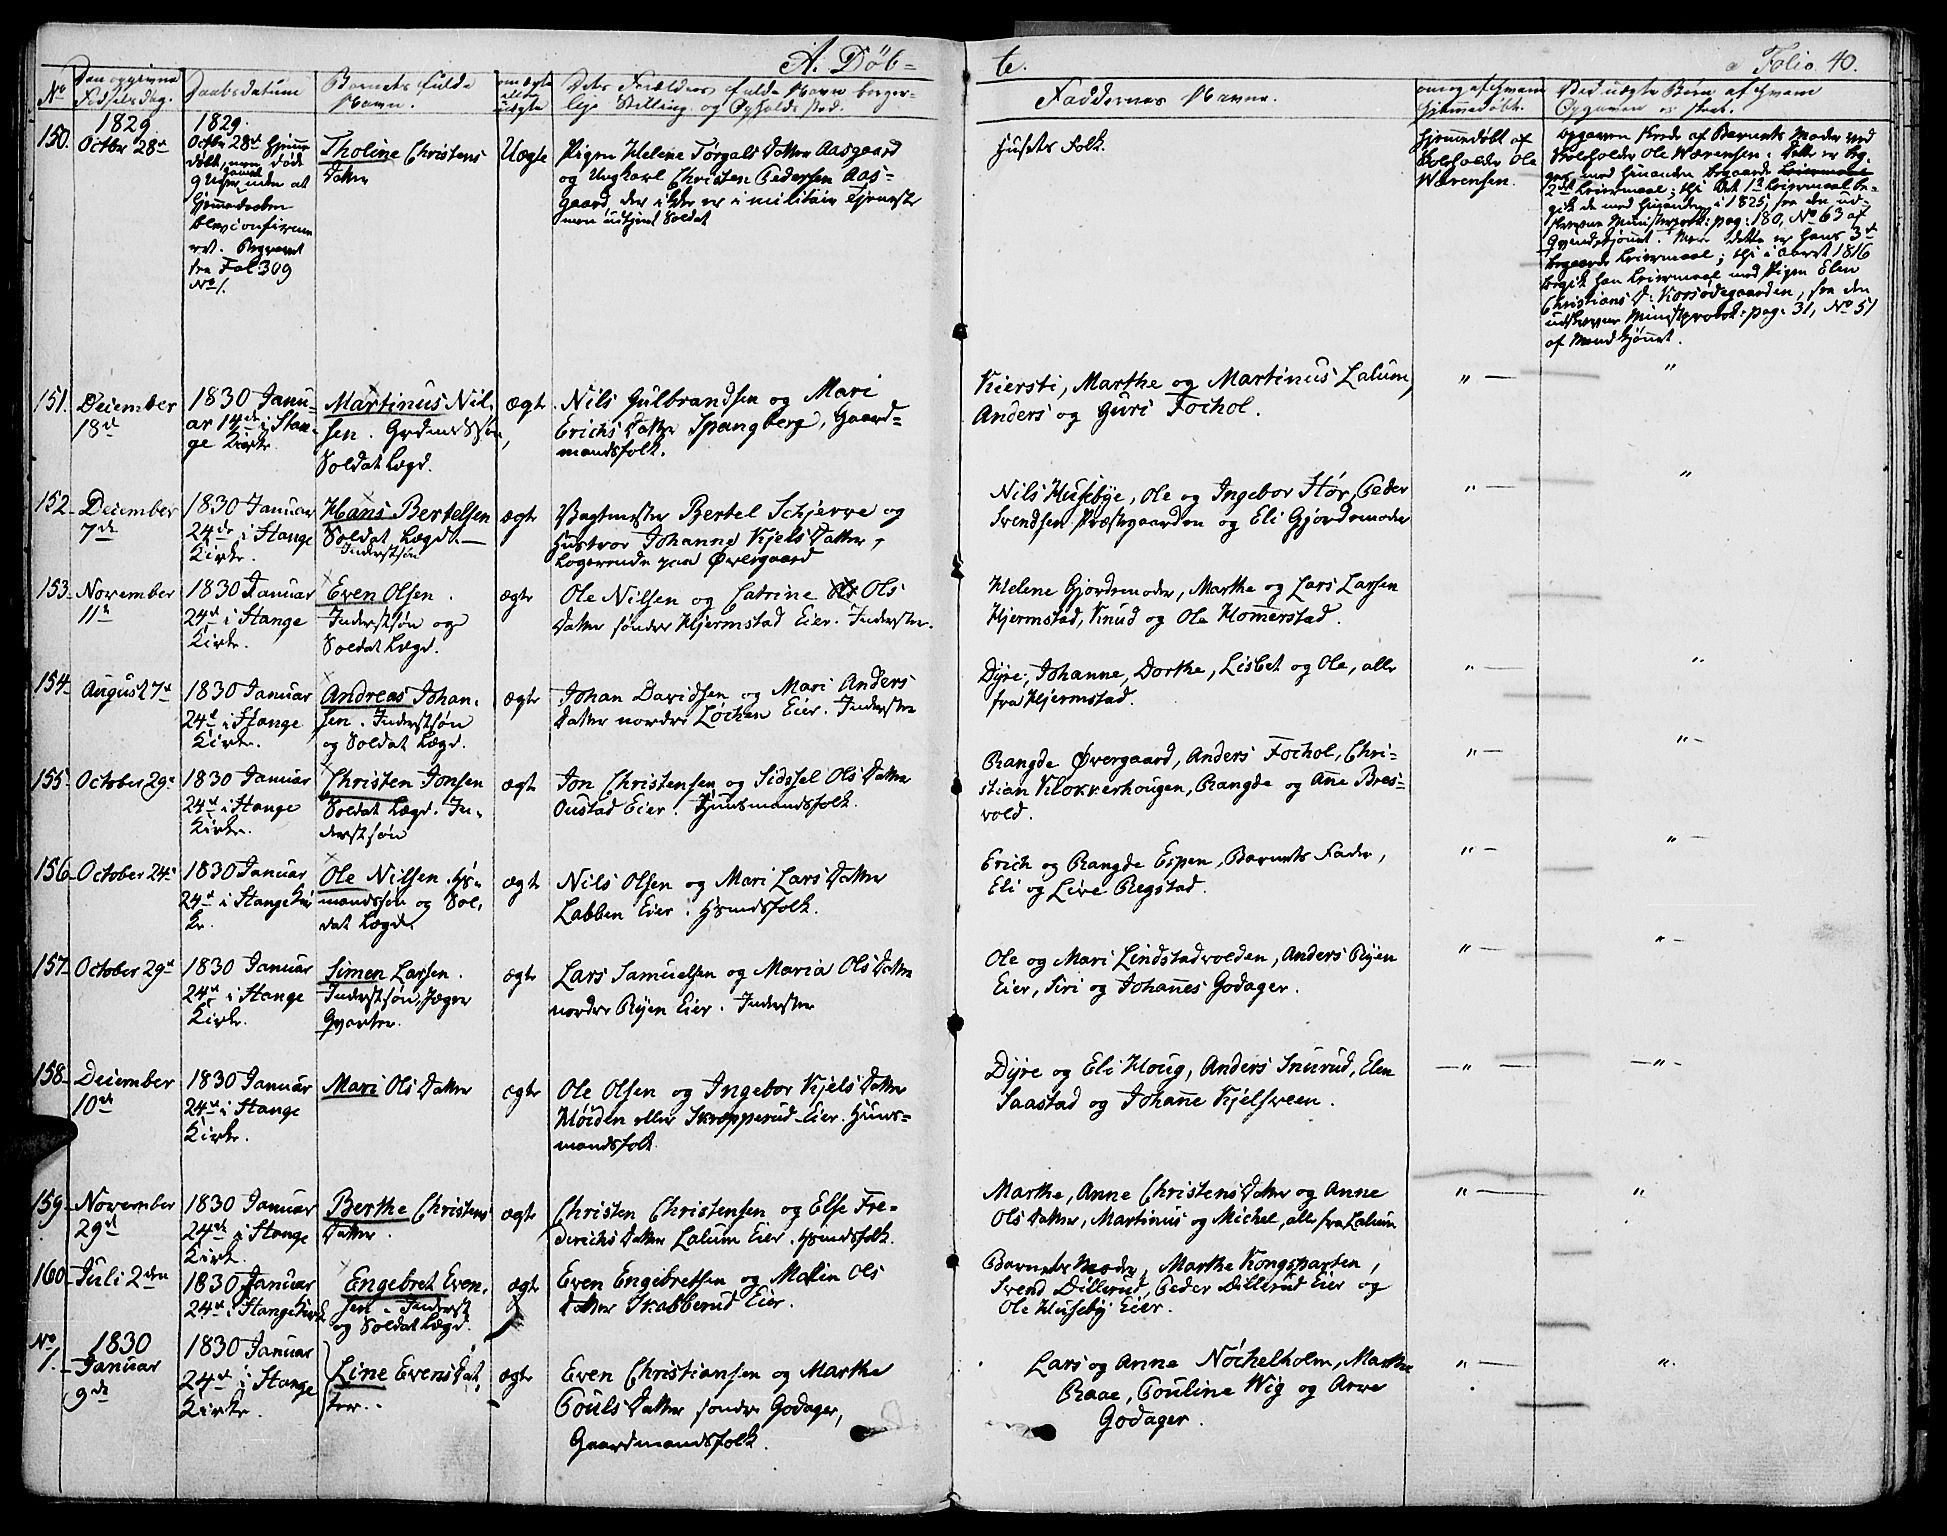 A. Døb-
te.
Folio. 40.
No
Den opgivne
Fødselsdag.
Daabsdatum
Barnets fulde
Navn.
om ægte
eller
uægte
Dets Forældres fulde Navn borger-
lige Stilling og Opholdssted.
Faddernes Navne.
om og af hvem
hjemmedøbt.
Ved uægte Børn af hvem
Opgaven er skeet.
150.
1829
Octbr 28de
1829.
Octbr 28de hjemme
døbt, men døde
9 Uger gammel uden at
hjemmedaaben
blev confirme
ret. Begravet
fra Fol: 309
No 1.
Tholine Christens
Datter
Uægte
Pigen Helene Torgals Datter Aasgaard
og Ungkarl Christen Pedersen Aas-
gaard, der ikke er i militair Tjeneste
men udtjent Soldat
Husets Folk.
hjemmedøbt af
Ole
Nærensen.
Opgaven skede af Barnets Moder ved
Ole Nærensen. Dette er beg-
ges med hinanden begaaede
2det Leiermaal; thi det 1ste Leiermaal be-
gik de med hinanden i 1825, fra den ud-
skrevne Ministerprotok: pag: 180, No 63 af
Qvindekjønnet. Men dette er hans 3de
begaaede Leiermaal; thi i Aaret 1816
begik han Leiermaal med Pigen Elen
Christians D: Korsødegaarden, fra den
udskrevne Ministprotok: pag: 31, No 51
af Mandkjønnet.
151.
December
18de
1830 Janu-
ar 14de i Stan-
ge Kirke.
Martinus Nil-
sen. Grdmdssøn,
Soldat Lægd.
ægte
Nils Gulbrandsen og Mari
Erichs Datter Spangberg, Gaard-
mandsfolk.
Kiersti, Marthe og Martinus Lalum,
Anders og Guri Fochol.
" —
"
152.
December
7de
1830 Januar
24de i Stange
Kirke.
Hans Bertelsen
Soldat Lægd. —
Inderstsøn
ægte
Vagtmester Bertel Schjerve og
Hustroe Johanne Kjels Datter,
Logerende paa Øvergaard
Nils Husebye, Ole og Ingebor Hør, Peder
Svendsen Præstegaarden og Eli Gjordemoder
" —
"
153.
November
11te
1830 Januar
24de i Stange
Kirke.
Even Olsen.
Inderstsøn og
Soldat Lægd.
ægte
Ole Nilsen og Catrine Ols
Datter søndre Hjermstad Eier. Inderster.
Helene Gjordemoder, Marthe og Lars Larsen
Hjermstad, Knud og Ole Homerstad.
154.
August 7de
1830 Januar
24de i Stange
Kirke.
Andreas Johan-
sen. Inderstsøn
og Soldat Lægd.
ægte
Johan Davidsen og Mari Anders
Datter nordre Løchen Eier. Inderster
Dyre, Johanne, Dorthe, Lisbet og Ole, alle
fra Hjermstad.
" —
"
155.
October 29de
1830 Januar
24de i Stange
Kirke.
Christen Jonsen
Soldat Lægd. In-
derstsøn
ægte
Jon Christensen og Sidssel Ols Datter
Oustad Eier. Huusmandsfolk.
Rangde Øvergaard, Anders Fochol, Chri-
stian Klokkerhougen, Rangde og Ane Bres-
vold.
" —
" -
156.
October 24de
1830 Januar
24de i Stange Kir
ke.
Ole Nilsen. Hs-
mandssøn og Sol-
dat Lægd.
ægte
Nils Olsen og Mari Lars Datter
Labben Eier. Hsmdsfolk.
Erich og Rangde Espen, Barnets Fader,
Eli og Live Regstad.
" -
" -
157.
October 29de
1830 Januar
24de i Stange
Kirke.
Simen Larsen.
Inderstsøn, Jæger
Qvarter.
ægte
Lars Samuelsen og Maria Ols Datter
nordre Ryen Eier. Inderster
Ole og Mari Lindstadvolden, Anders Ryen
Eier, Siri og Johannes Godager.
" —
" -
158.
December
10de
1830 Januar
24de i Stange
Kirke.
Mari Ols Datter
ægte
Ole Olsen og Ingebor Kjels Datter
Høiden eller Skropperud-Eier. Huus-
mandsfolk
Dyre og Eli Houg, Anders Snurud, Elen
Saastad og Johanne Kjelsveen.
— " —
— " -
159.
November
29de
1830 Januar
24de i Stange
Kirke.
Berthe Christens
Datter.
ægte
Christen Christensen og Else Fre-
derichs Datter Lalum Eier. Hsmdsfolk.
Marthe, Anne Christens Datter og Anne
Ols Datter, Martinus og Michel, alle fra Lalum
" —
"
160.
Juli 2den
1830 Januar
24de i Stange Kirke
Engebret Even-
sen. Inderst
og Soldat Lægd.
ægte
Even Engebretsen og Malin Ols
Datter Skabberud Eier.
Barnets Moder, Marthe Kongsparten,
Svend Dillerud, Peder Dillerud Eier og
Ole Huseby Eier.
No
1.
1830
Januar
9de
1830 Januar
24de i Stange
Kirke.
Line Evens Dat-
ter.
ægte
Even Christiansen og Marthe
Pouls Datter søndre Godager,
Gaardmandsfolk.
Lars og Anne Nøchelholm, Marthe
Raae, Pouline Wig og Arve
Godager.
" —
"